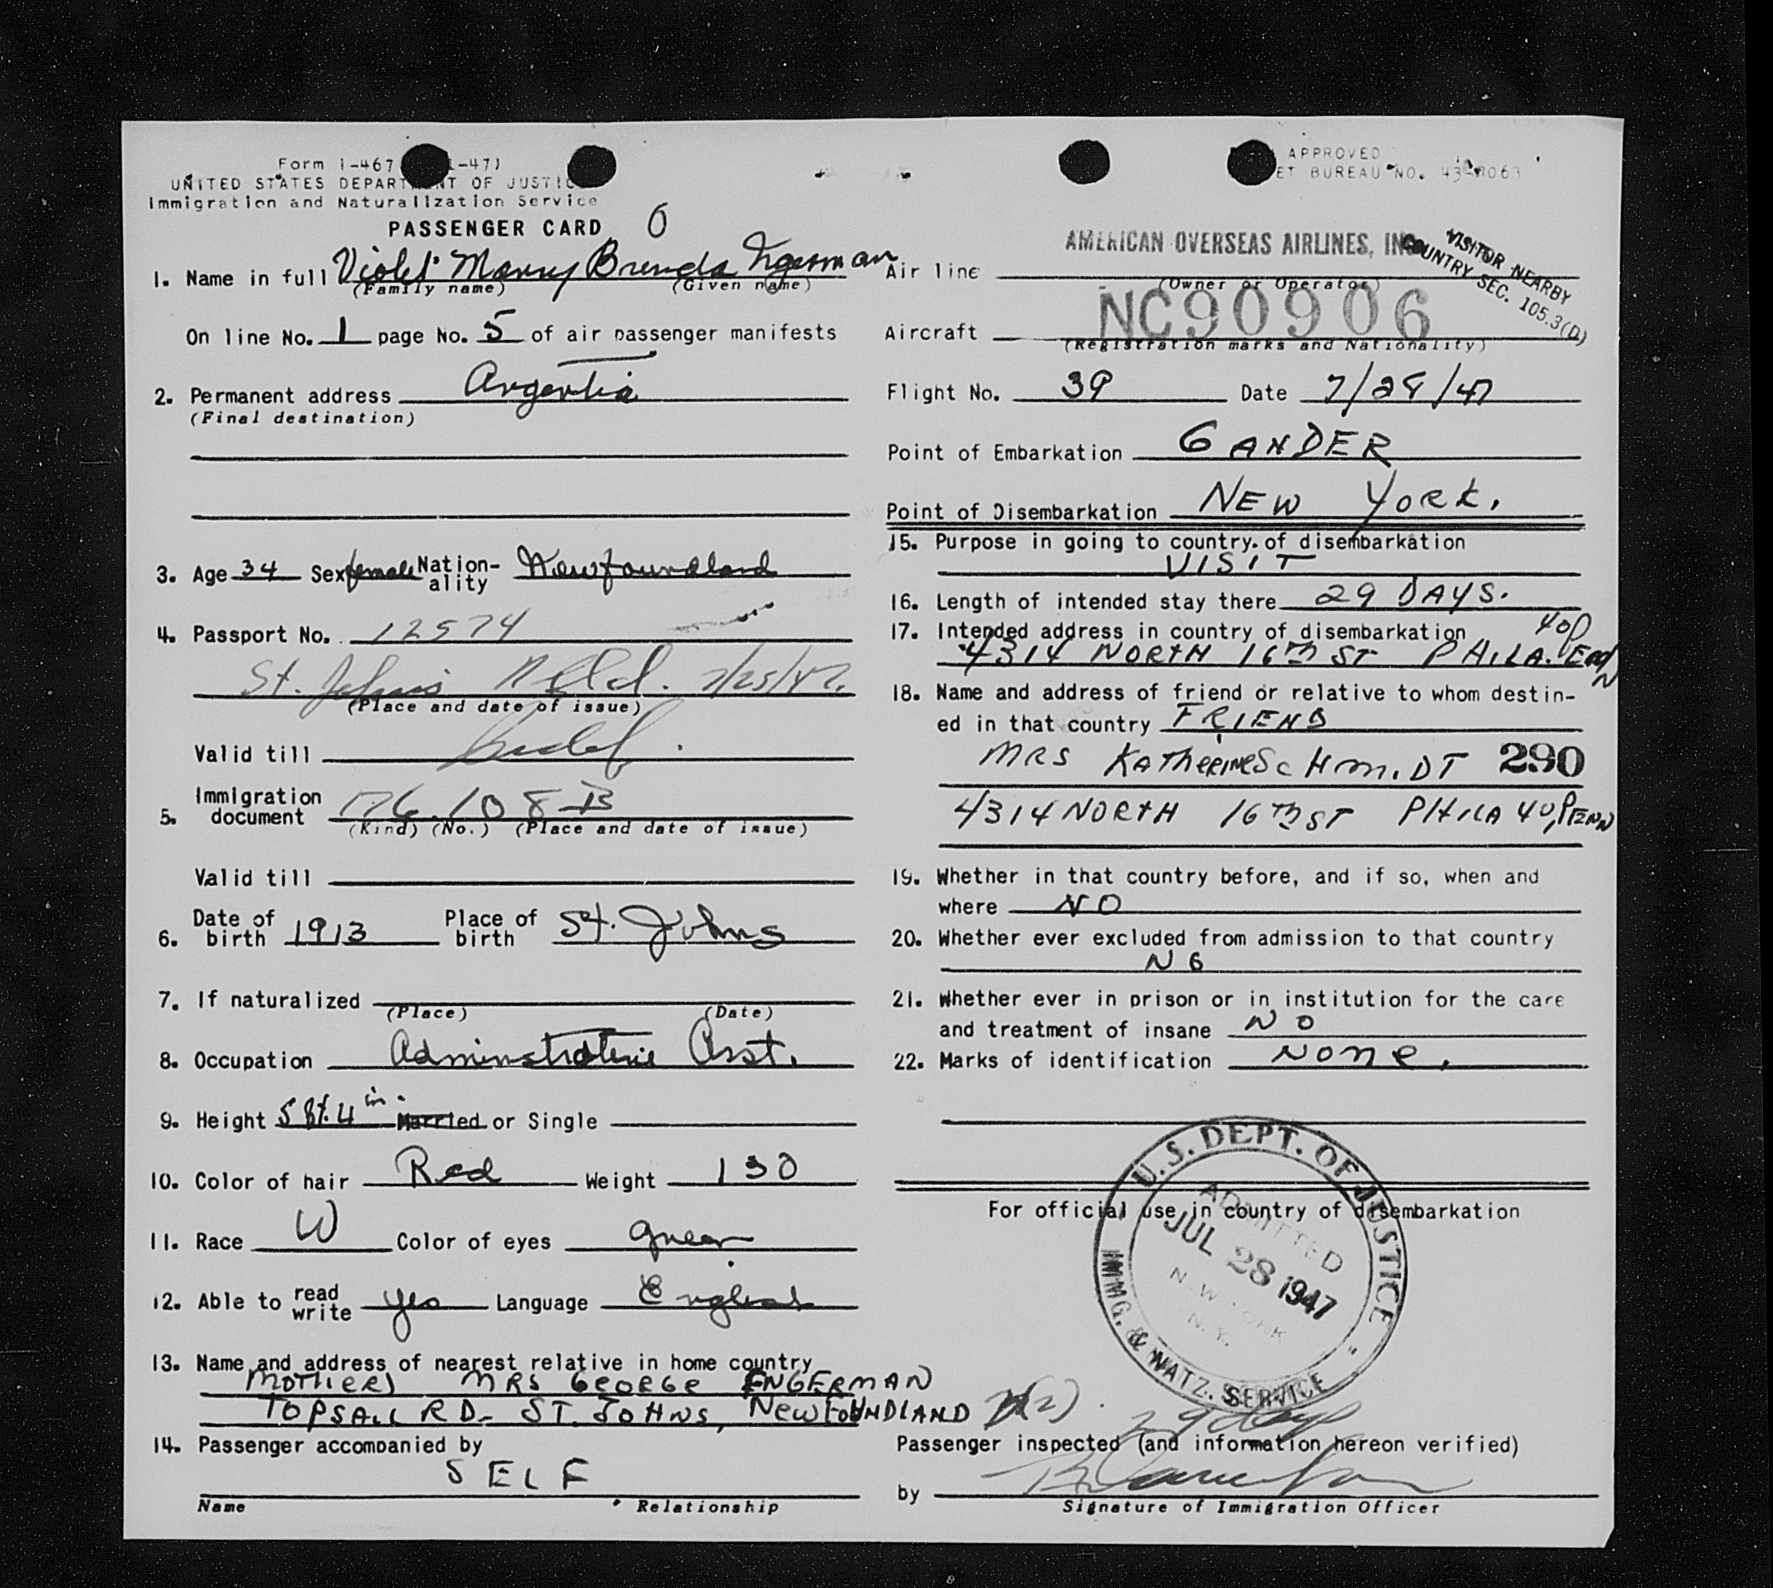 Form I-467 -47)
UNITED STATES DEPARTMENT OF JUSTICE
Immigration and Naturalization Service
PASSENGER CARD O
1. Name in full Violet Brenda
(Family name) (Given name)
On line No. 1 page No. 5 of air passenger manifests
2. Permanent address Argentia
(Final destination)
3. Age 34 Sex female Nation-ality Newfoundland
4. Passport No. 12574
St. John's Nfld. 7/25/47.
(Place and date of issue)
Valid till
5. Immigration document 176.108-B
(Kind) (No.) (Place and date of issue)
Valid till
6. Date of birth 1913 Place of birth St. Johns
7. If naturalized
(Place) (Date)
8. Occupation Adminstrative Asst.
9. Height 5 ft. 4 in. Married or Single
10. Color of hair Red Weight 130
11. Race W Color of eyes green
12. Able to read write yes Language English
13. Name and address of nearest relative in home country
MOTHER) MRS GEORGE ENGERMAN
TOPSAIL RD- ST. JOHNS, NEWFOUNDLAND
14. Passenger accompanied by
SELF
Name Relationship
APPROVED
ET BUREAU NO. 43-
AMERICAN OVERSEAS AIRLINES, INC.
VISITOR NEARBY
COUNTRY SEC. 105.3(D)
Air line
(Owner or Operator)
Aircraft NC90906
(Registration marks and Nationality)
Flight No. 39 Date 7/28/47
Point of Embarkation GANDER
Point of Disembarkation NEW YORK.
15. Purpose in going to country of disembarkation
VISIT
16. Length of intended stay there 29 DAYS.
17. Intended address in country of disembarkation
4314 NORTH 16TH ST PHILA. 40, PENN
18. Name and address of friend or relative to whom destin-
ed in that country FRIEND
MRS KATHERINE SCHMIDT 290
4314 NORTH 16TH ST PHILA 40, PENN
19. Whether in that country before, and if so, when and
where NO
20. Whether ever excluded from admission to that country
NO
21. Whether ever in prison or in institution for the care
and treatment of insane NO
22. Marks of identification NONE.
For official use in country of disembarkation
U.S. DEPT. OF JUSTICE
ADMITTED
JUL 28 1947
NEW YORK
N.Y.
IMMG. & NATZ. SERVICE
29 days
Passenger inspected (and information hereon verified)
by
Signature of Immigration Officer